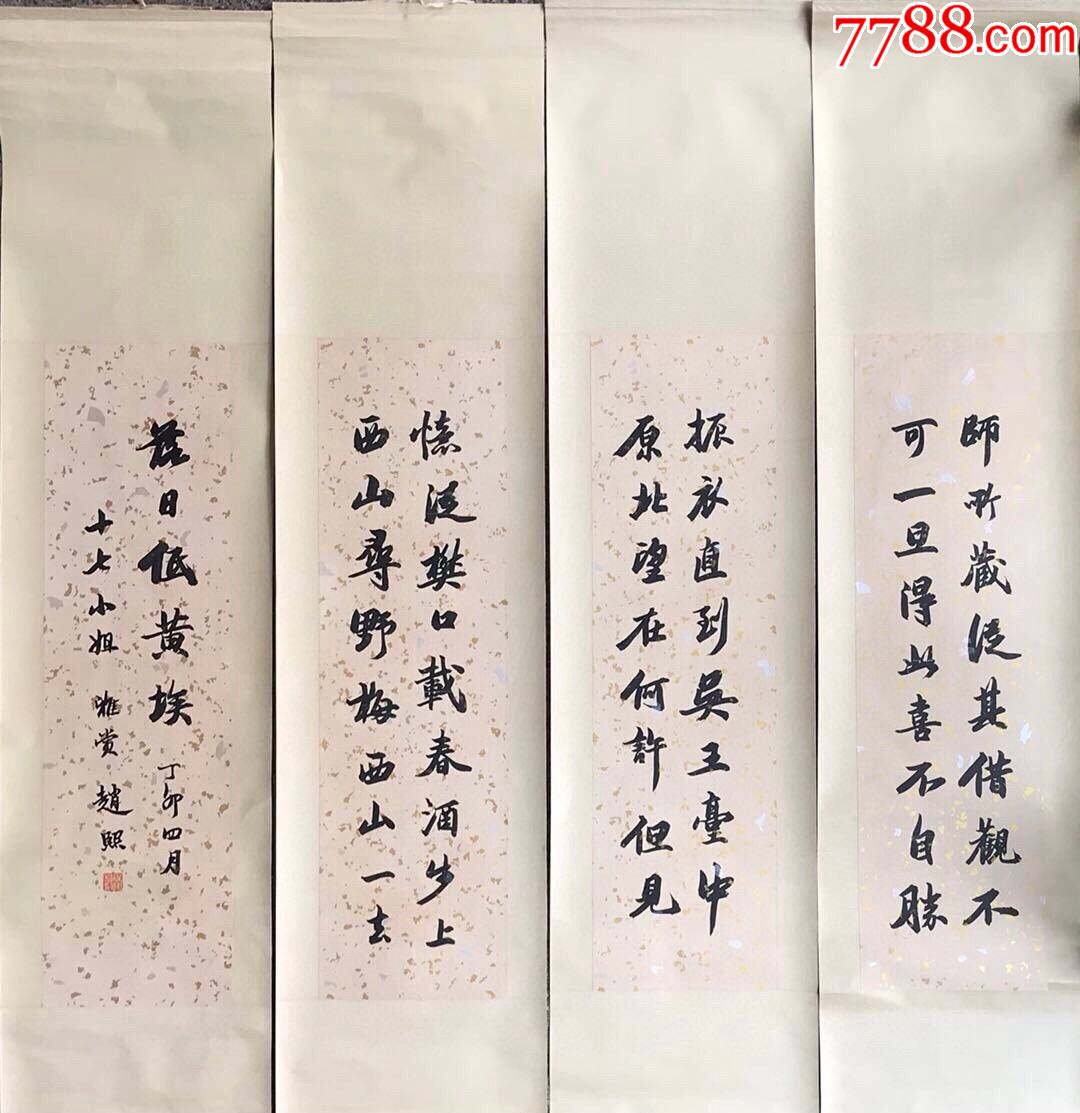 7788.com
師所藏從其借觀不
可一旦得此喜不自勝
振衣直到吳王臺中
原北望在何許但見
憶從樊口載春酒步上
西山尋野梅西山一去
落日低黄埃 丁卯四月
十七小姐 雅赏 趙熙